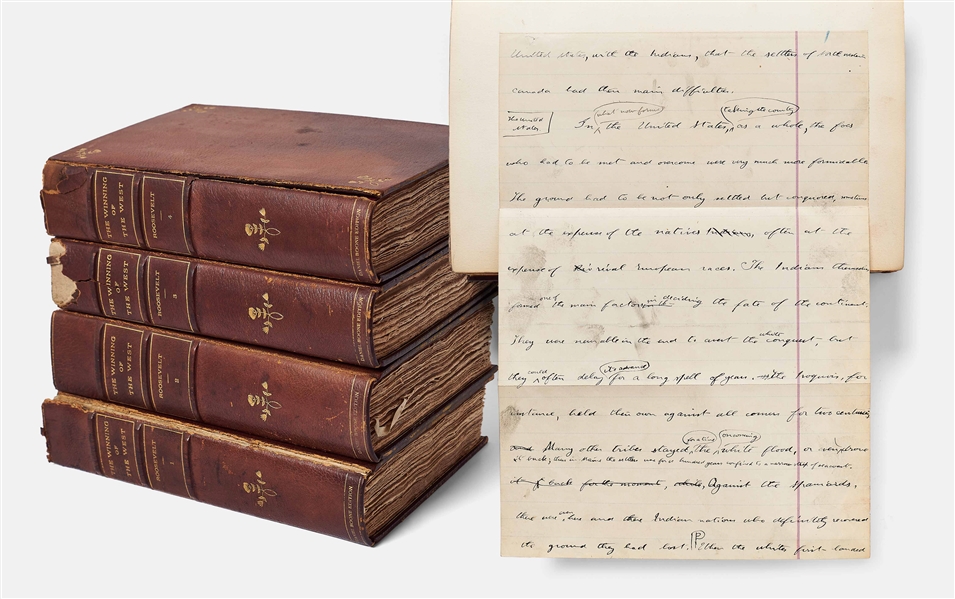 THE WINNING
OF
THE WEST
ROOSEVELT
4
DANIEL BOONE EDITION
THE WINNING
OF
THE WEST
ROOSEVELT
3
DANIEL BOONE EDITION
THE WINNING
OF
THE WEST
ROOSEVELT
II
DANIEL BOONE EDITION
THE WINNING
OF
THE WEST
ROOSEVELT
I
DANIEL BOONE EDITION
United States, with the Indians, that the settlers of
Canada had their main difficulties.
what now forms
taking the country
The United
States
In the United States, as a whole, the foes
who had to be met and overcome were very much more formidable
The ground had to be not only settled but conquered, sometimes
at the expense of the natives, often at the
expense of rival European races. The Indians themselves
one of
in deciding
formed the main factors the fate of the continent.
white
They were never able in the end to avert the conquest, but
could
its advance
they often delay for a long spell of years. The Iroquois, for
instance, held their own against all comers for two centuries
native
oncoming
Many other tribes stayed the white flood, or even drove
it back; thus in Maine the settlers were for a hundred years confined to a narrow strip of seacoast.
it back for the moment, Against the Spaniards,
even
there were here and there Indian nations who definitely recovered
the ground they had lost. When the whites first landed